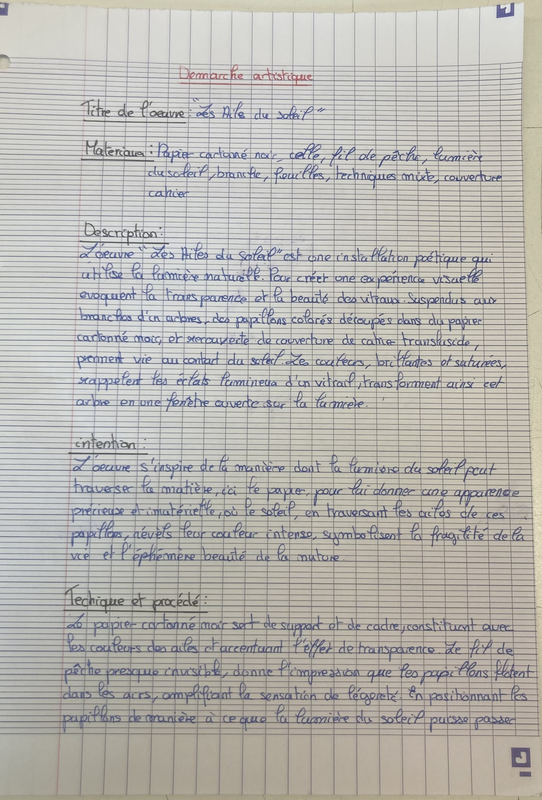 Demarche artistique
Titre de l'œuvre : "Les Ailes du soleil"
Materiaux : Papier cartonné noir, colle, fil de pêche, lumière
du soleil, branche, feuilles, techniques mixte, couverture
cahier
Description :
L'œuvre "Les Ailes du soleil" est une installation poétique qui
utilise la lumière naturelle. Pour créer une expérience visuelle
evoquent la transparence et la beauté des vitraux. Suspendus aux
branches d'un arbres, des papillons colorés découpés dans du papier
cartonné noir, et recouverte de couverture de cahier transluside,
prennent vie au contact du soleil. Les couleurs, brillantes et saturées,
rappelent les éclats lumineux d'un vitrail, transforment ainsi cet
arbre en une fenêtre ouverte sur la lumière.
intention :
L'œuvre s'inspire de la manière dont la lumiere du soleil peut
traverser la matière, ici le papier, pour lui donner une apparence
précieuse et imatérielle, où le soleil, en traversant les ailes de ces
papillons, révèls leur couleur intense, symbolisent la fragilité de la
vie et l'éphémère beauté de la nature.
Technique et procédé :
Le papier cartonné noir sert de support et de cadre, constituant avec
les couleurs des ailes et accentuant l'effet de transparence. Le fil de
pêche presque invisible, donne l'impression que les papillons flotent
dans les airs, amplifiant la sensation de légereté. En positionnant les
papillons de manière à ce que la lumière du soleil puisse passer